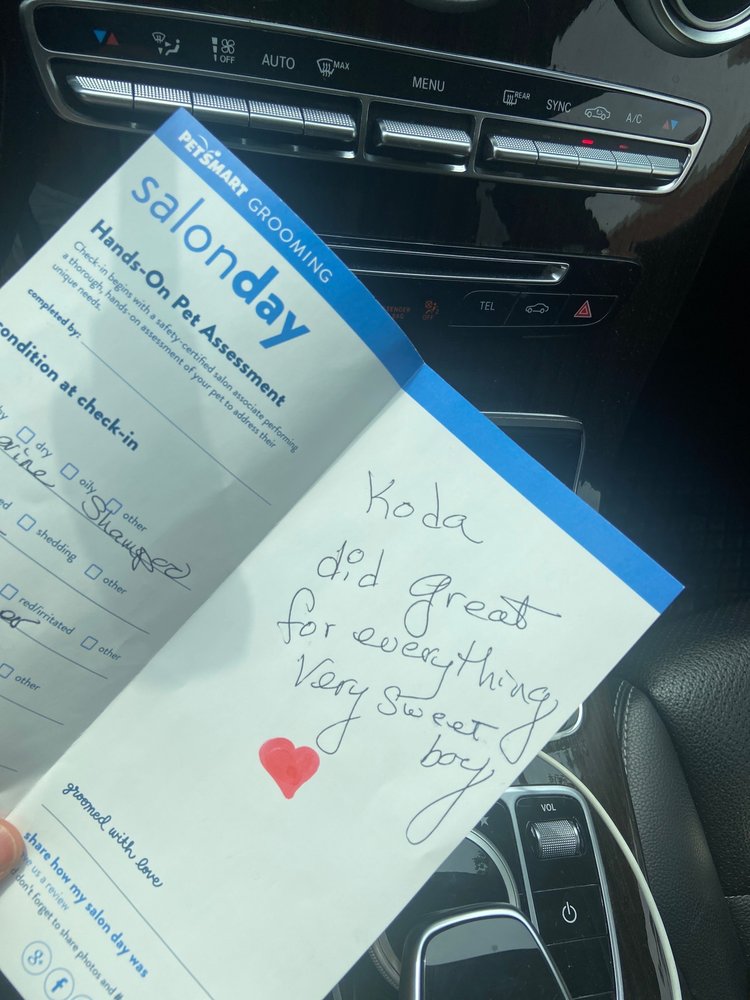 OFF
AUTO
MAX
MENU
REAR
SYNC
A/C
TEL
OFF
PETSMART GROOMING
salonday
Hands-On Pet Assessment
Check-in begins with a safety-certified salon associate performing
a thorough, hands-on assessment of your pet to address their
unique needs.
completed by:
condition at check-in
dry
oily
other
Shampoo
shedding
other
red/irritated
other
other
Koda
did great
for everything
Very sweet
boy
groomed with love
share how my salon day was
us a review
don't forget to share photos and #
g+
f
VOL